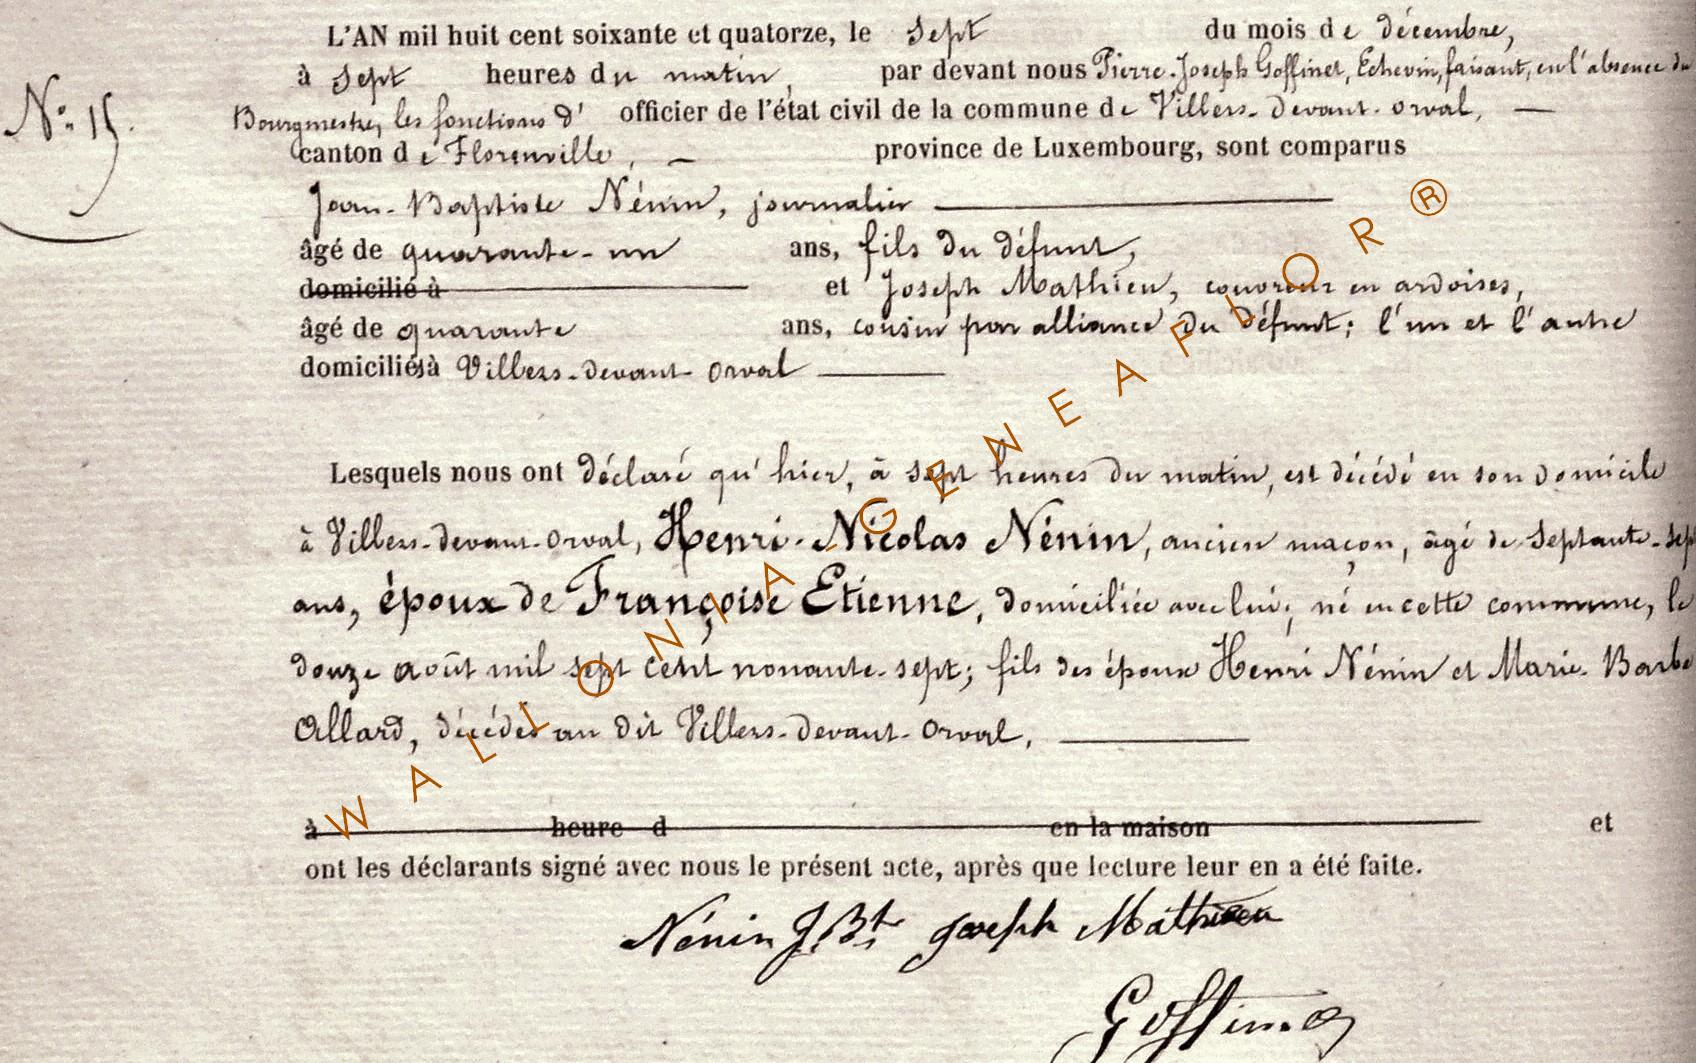 L'AN mil huit cent soixante et quatorze, le sept du mois de décembre,
à sept heures du matin, par devant nous Pierre-Joseph Goffinet, Echevin, faisant, en l'absence du
N° 15. Bourgmestre, les fonctions d' officier de l'état civil de la commune de Villers-devant-orval, —
canton de Florenville, — province de Luxembourg, sont comparus
Jean-Baptiste Nénin, journalier
âgé de quarante-un ans, fils du défunt,
domicilié à et Joseph Mathieu, couvreur en ardoises,
âgé de quarante ans, cousin par alliance du défunt; l'un et l'autre
domiciliés à Villers-devant-orval
Lesquels nous ont déclaré qu'hier, à sept heures du matin, est décédé en son domicile
à Villers-devant-orval, Henri-Nicolas Nénin, ancien maçon, âgé de septante-sept
ans, époux de Françoise Etienne, domiciliée avec lui; né en cette commune, le
douze août mil sept cent nonante-sept; fils des époux Henri Nénin et Marie-Barbe
Allard, décédés au dit Villers-devant-orval,
à heure d en la maison et
ont les déclarants signé avec nous le présent acte, après que lecture leur en a été faite.
Nénin J. Bt Joseph Mathieu
Goffinet
WALLONIA-GENEAFLOR®